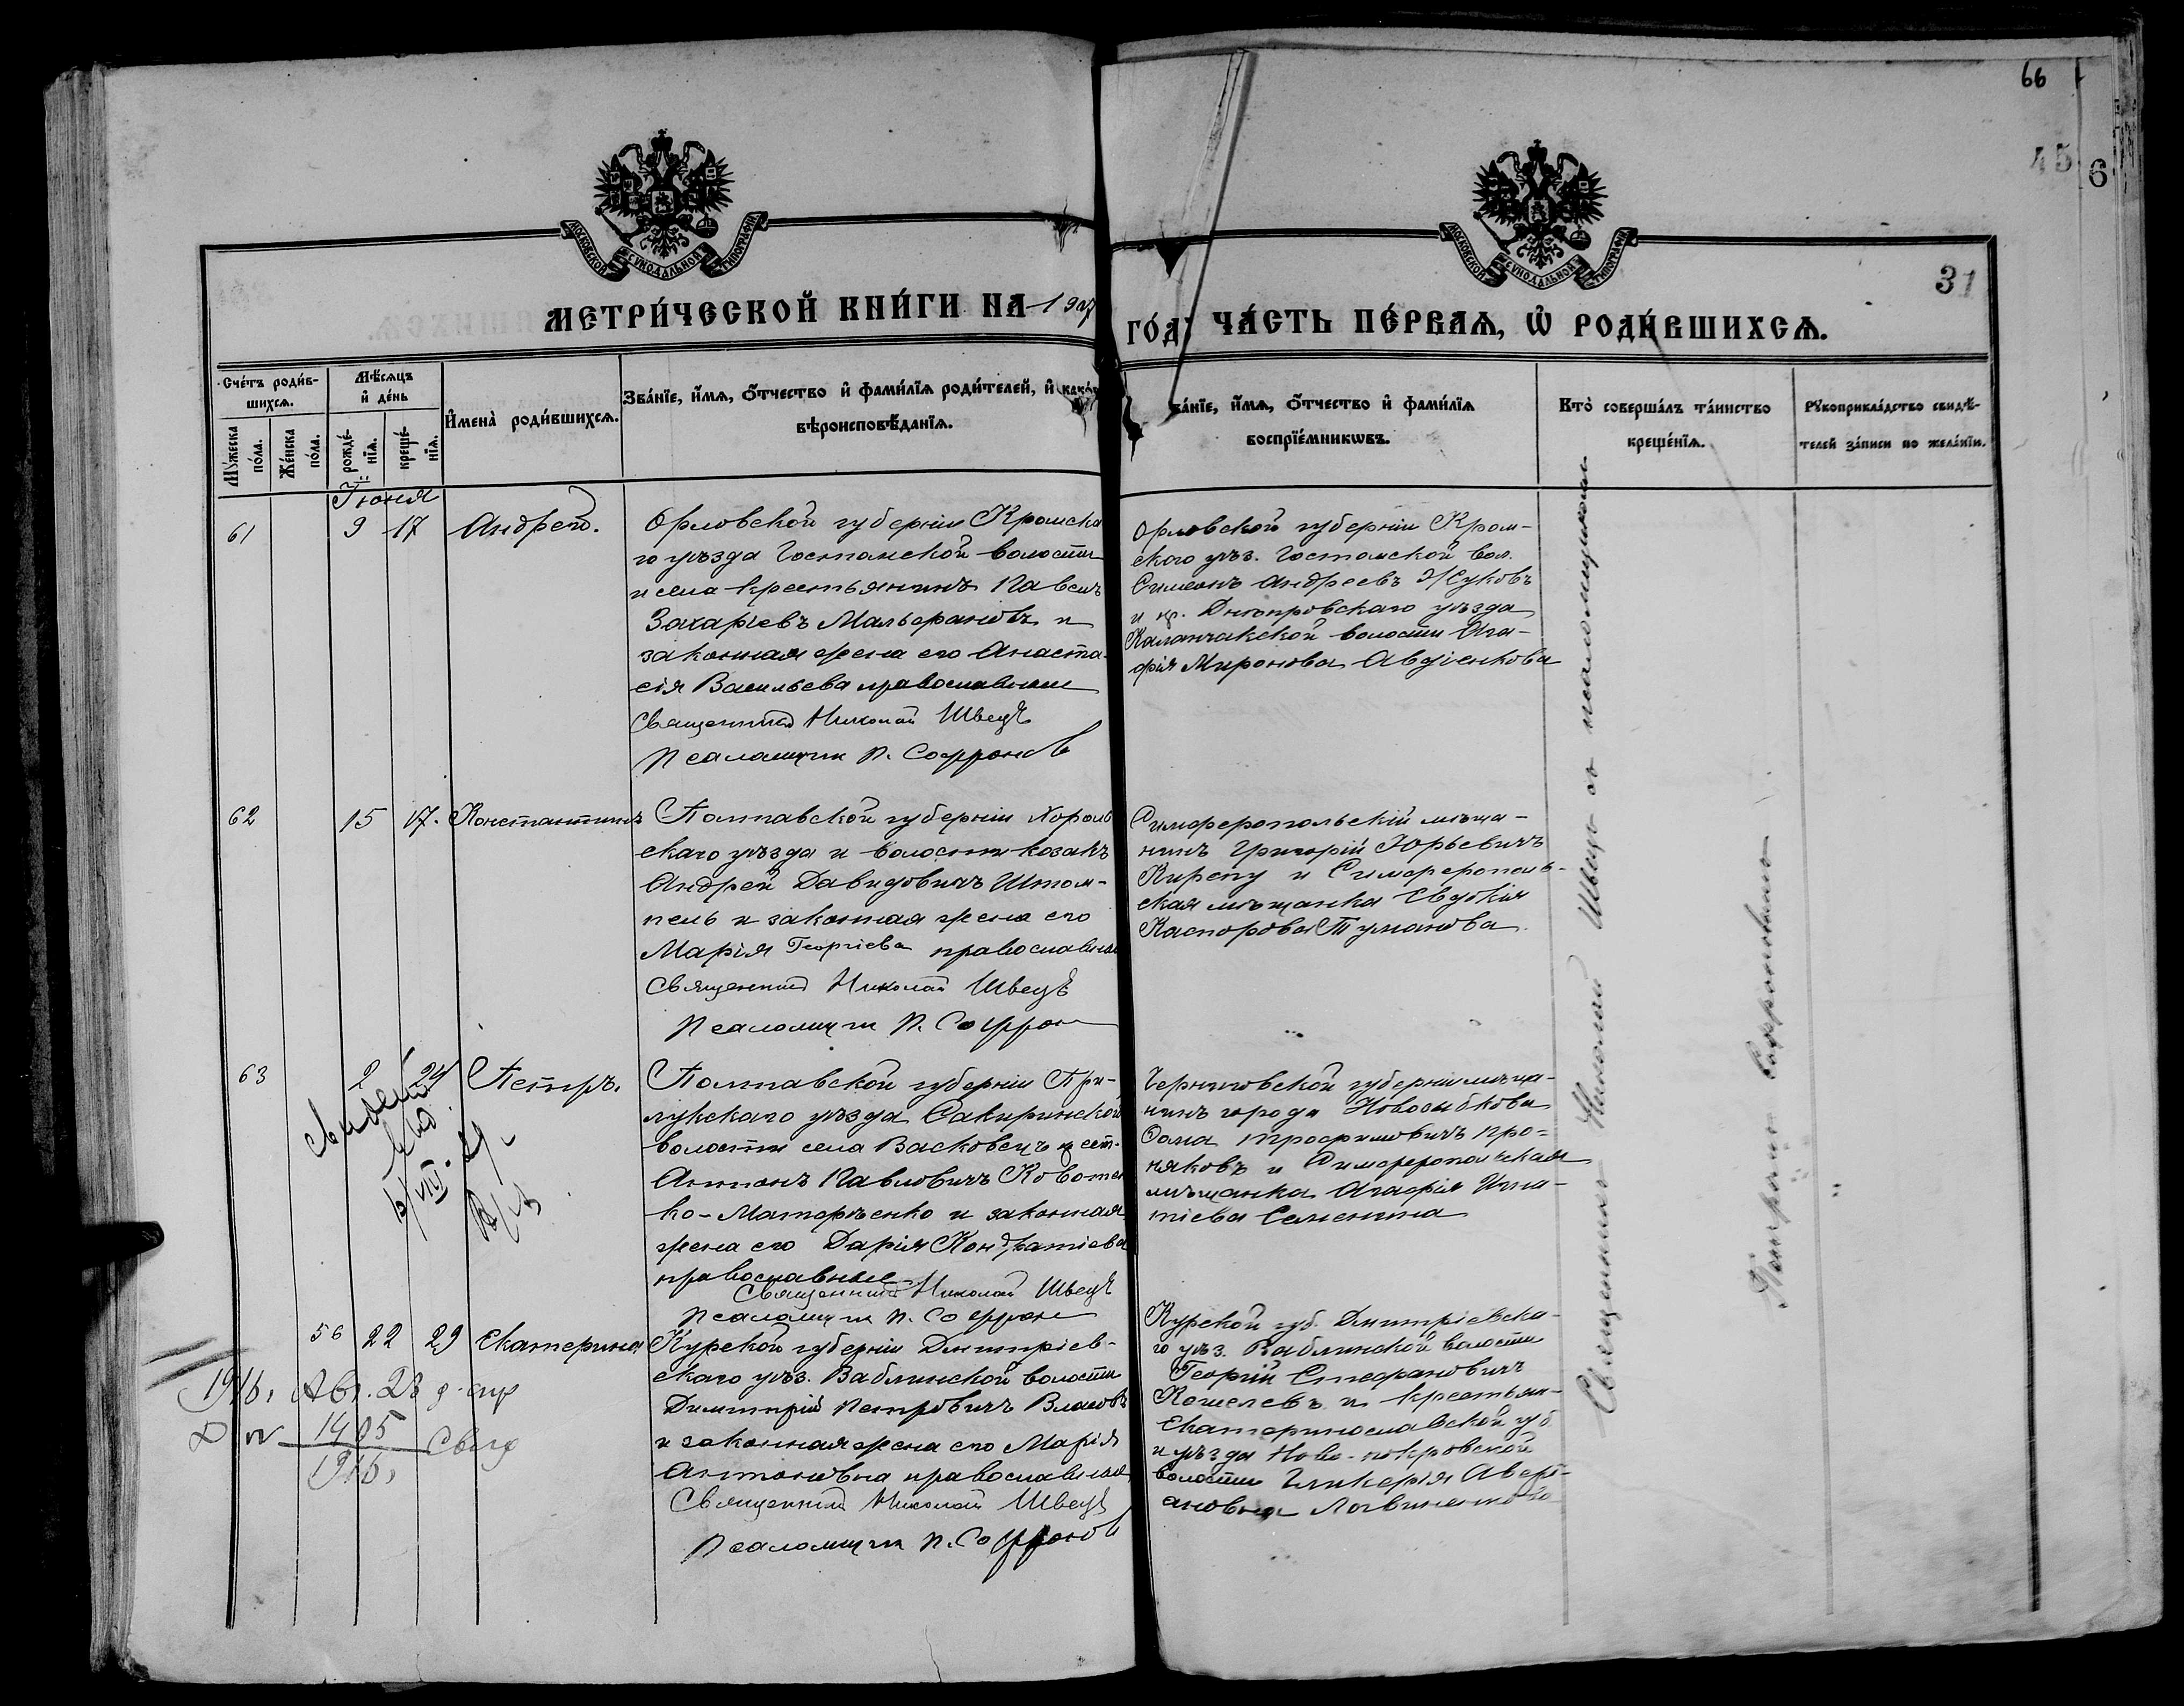 66
45
6
31
МОСКОВСКОЙ СѴНОДАЛЬНОЙ ТИПОГРАФІИ
МОСКОВСКОЙ СѴНОДАЛЬНОЙ ТИПОГРАФІИ
МЕТРИ́ЧЕСКОЙ КНИ́ГИ НА 1907
ГО́ДЪ ЧА́СТЬ ПЕ́РВАѦ, Ѡ҆ РОДИ́ВШИХСѦ.
Сче́тъ роди́в-
шихсѧ.
Мꙋ́жеска
по́ла.
Же́нска
по́ла.
Мѣ́сѧцъ
и҆ де́нь
рожде́-
нїѧ.
креще́-
нїѧ.
И҆мена̀ роди́вшихсѧ.
Зва́нїе, и҆́мѧ, ѻ҆́тчество и҆ фами́лїѧ роди́телей, и҆ како́гѡ
вѣроисповѣ́данїѧ.
Зва́нїе, и҆́мѧ, ѻ҆́тчество и҆ фами́лїѧ
воспрїе́мникѡвъ.
Кто̀ соверша́лъ та́инство
креще́нїѧ.
Рꙋкоприкла́дство свидѣ́-
телей за́писи по жела́нїю.
Іюня
61 9 17 Андрей.
Орловской губерніи Кромска
го уѣзда Гостомской волости
и села крестьянинъ Павелъ
Захаріевъ Мальерановъ и
законная жена его Анаста-
сія Васильева православные
Священникъ Николай Швецъ
Псаломщикъ П. Софронов
Орловской губерніи Кром-
скаго уѣз. Гостомской вол.
Симеонъ Андреевъ Жуковъ
и кр. Днѣпровскаго уѣзда
Каланчакской волости Ага-
фія Миронова Авдіенкова
62 15 17. Константинъ
Полтавской губерніи Хороль
скаго уѣзда и волости козакъ
Андрей Давидовичъ Штом-
пель и законная жена его
Марія Георгіева православные
Священникъ Николай Швецъ
Псаломщикъ П. Софрон
Симферопольскій мѣща-
нинъ Григорій Юрьевичъ
Кирепу и Симферополь-
ская мѣщанка Евдокія
Каспорова Туманова
63 2 24 Петръ.
Полтавской губерніи При-
лукскаго уѣзда Сакиринской
волости села Васковецъ крест.
Антонъ Павловичъ
и законная
жена его Дарія Кондратіева
православные
Священникъ Николай Швецъ
Псаломщикъ П. Софрон
Черниговской губерніи мѣща-
нинъ города Новозыбкова
Ѳома Трофимовичъ Про-
няковъ и Симферопольская
мѣщанка Агафія Игна-
тіева Семенина
56 22 29 Екатерина
Курской губерніи Дмитріев-
скаго уѣз. Ваблинской волости
Димитрій Петровичъ Власовъ
и законная жена его Марія
Антоновна православные
Священникъ Николай Швецъ
Псаломщикъ П. Софронов
Курской губ. Дмитріевска-
го уѣз. Ваблинской волости
Георгій Стефановичъ
Кошелевъ и крестьян-
Екатеринославской губ
и уѣзда Ново-покровской
волости Гликерія Авер-
ановна
1916. Авг. 23
№ 1405
1916.
Священникъ Николай Швецъ съ псаломщикомъ
Петромъ Софроновымъ